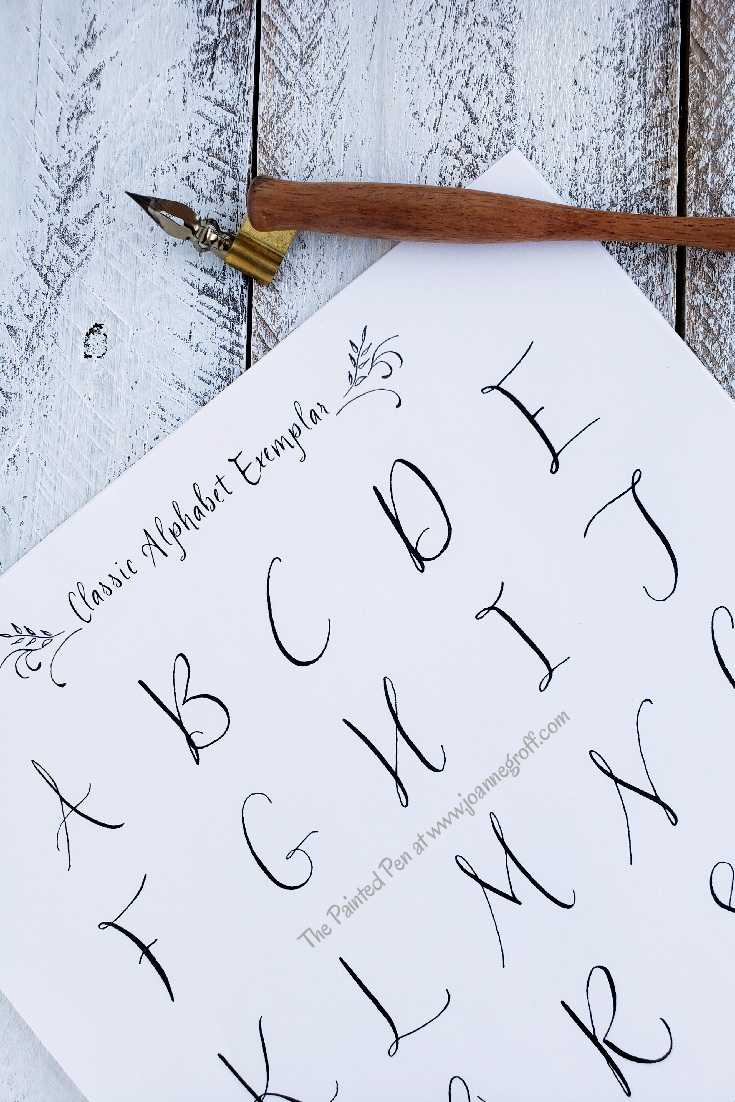 Classic Alphabet Exemplar
A B C D E
F G H I J
K L M N
R
The Painted Pen at www.joannegroff.com